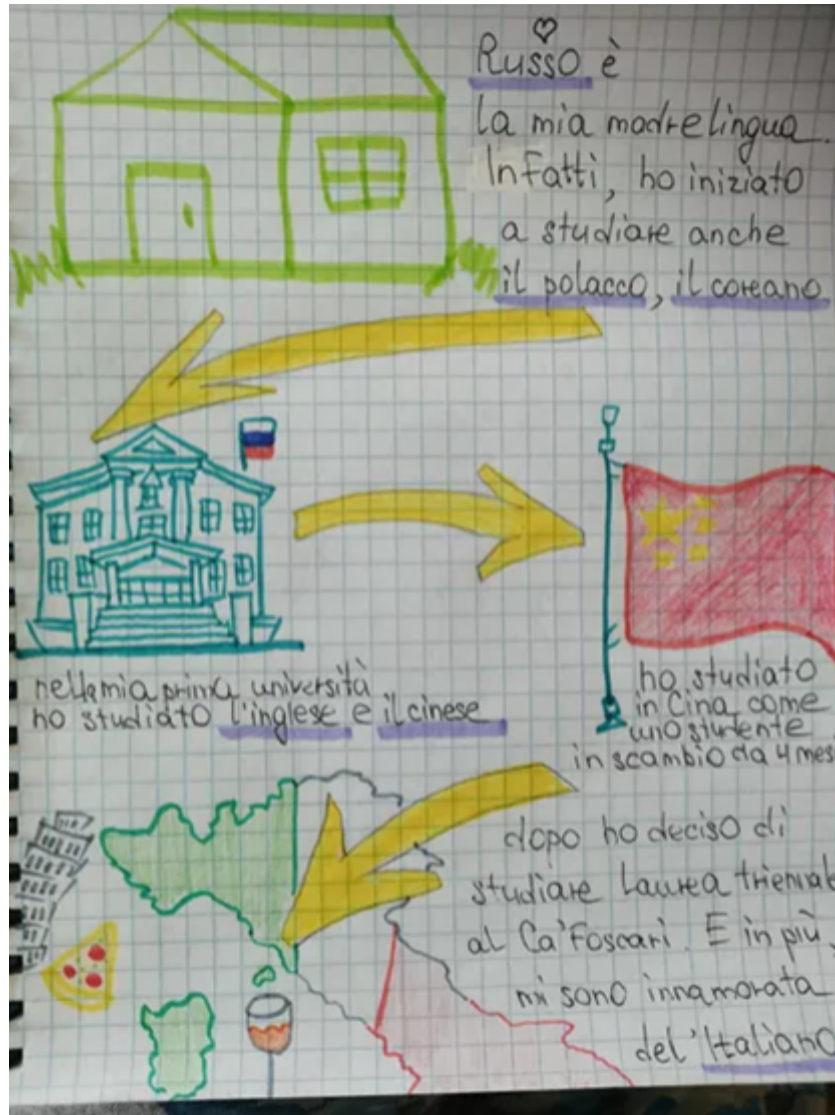 Russo è
la mia madrelingua.
Infatti, ho iniziato
a studiare anche
il polacco, il coreano
nella mia prima università
ho studiato l'inglese e il cinese
ho studiato
in Cina come
uno studente
in scambio da 4 mesi
dopo ho deciso di
studiare Laurea triennale
al Ca' Foscari. E in più,
mi sono innamorata
del'Italiano